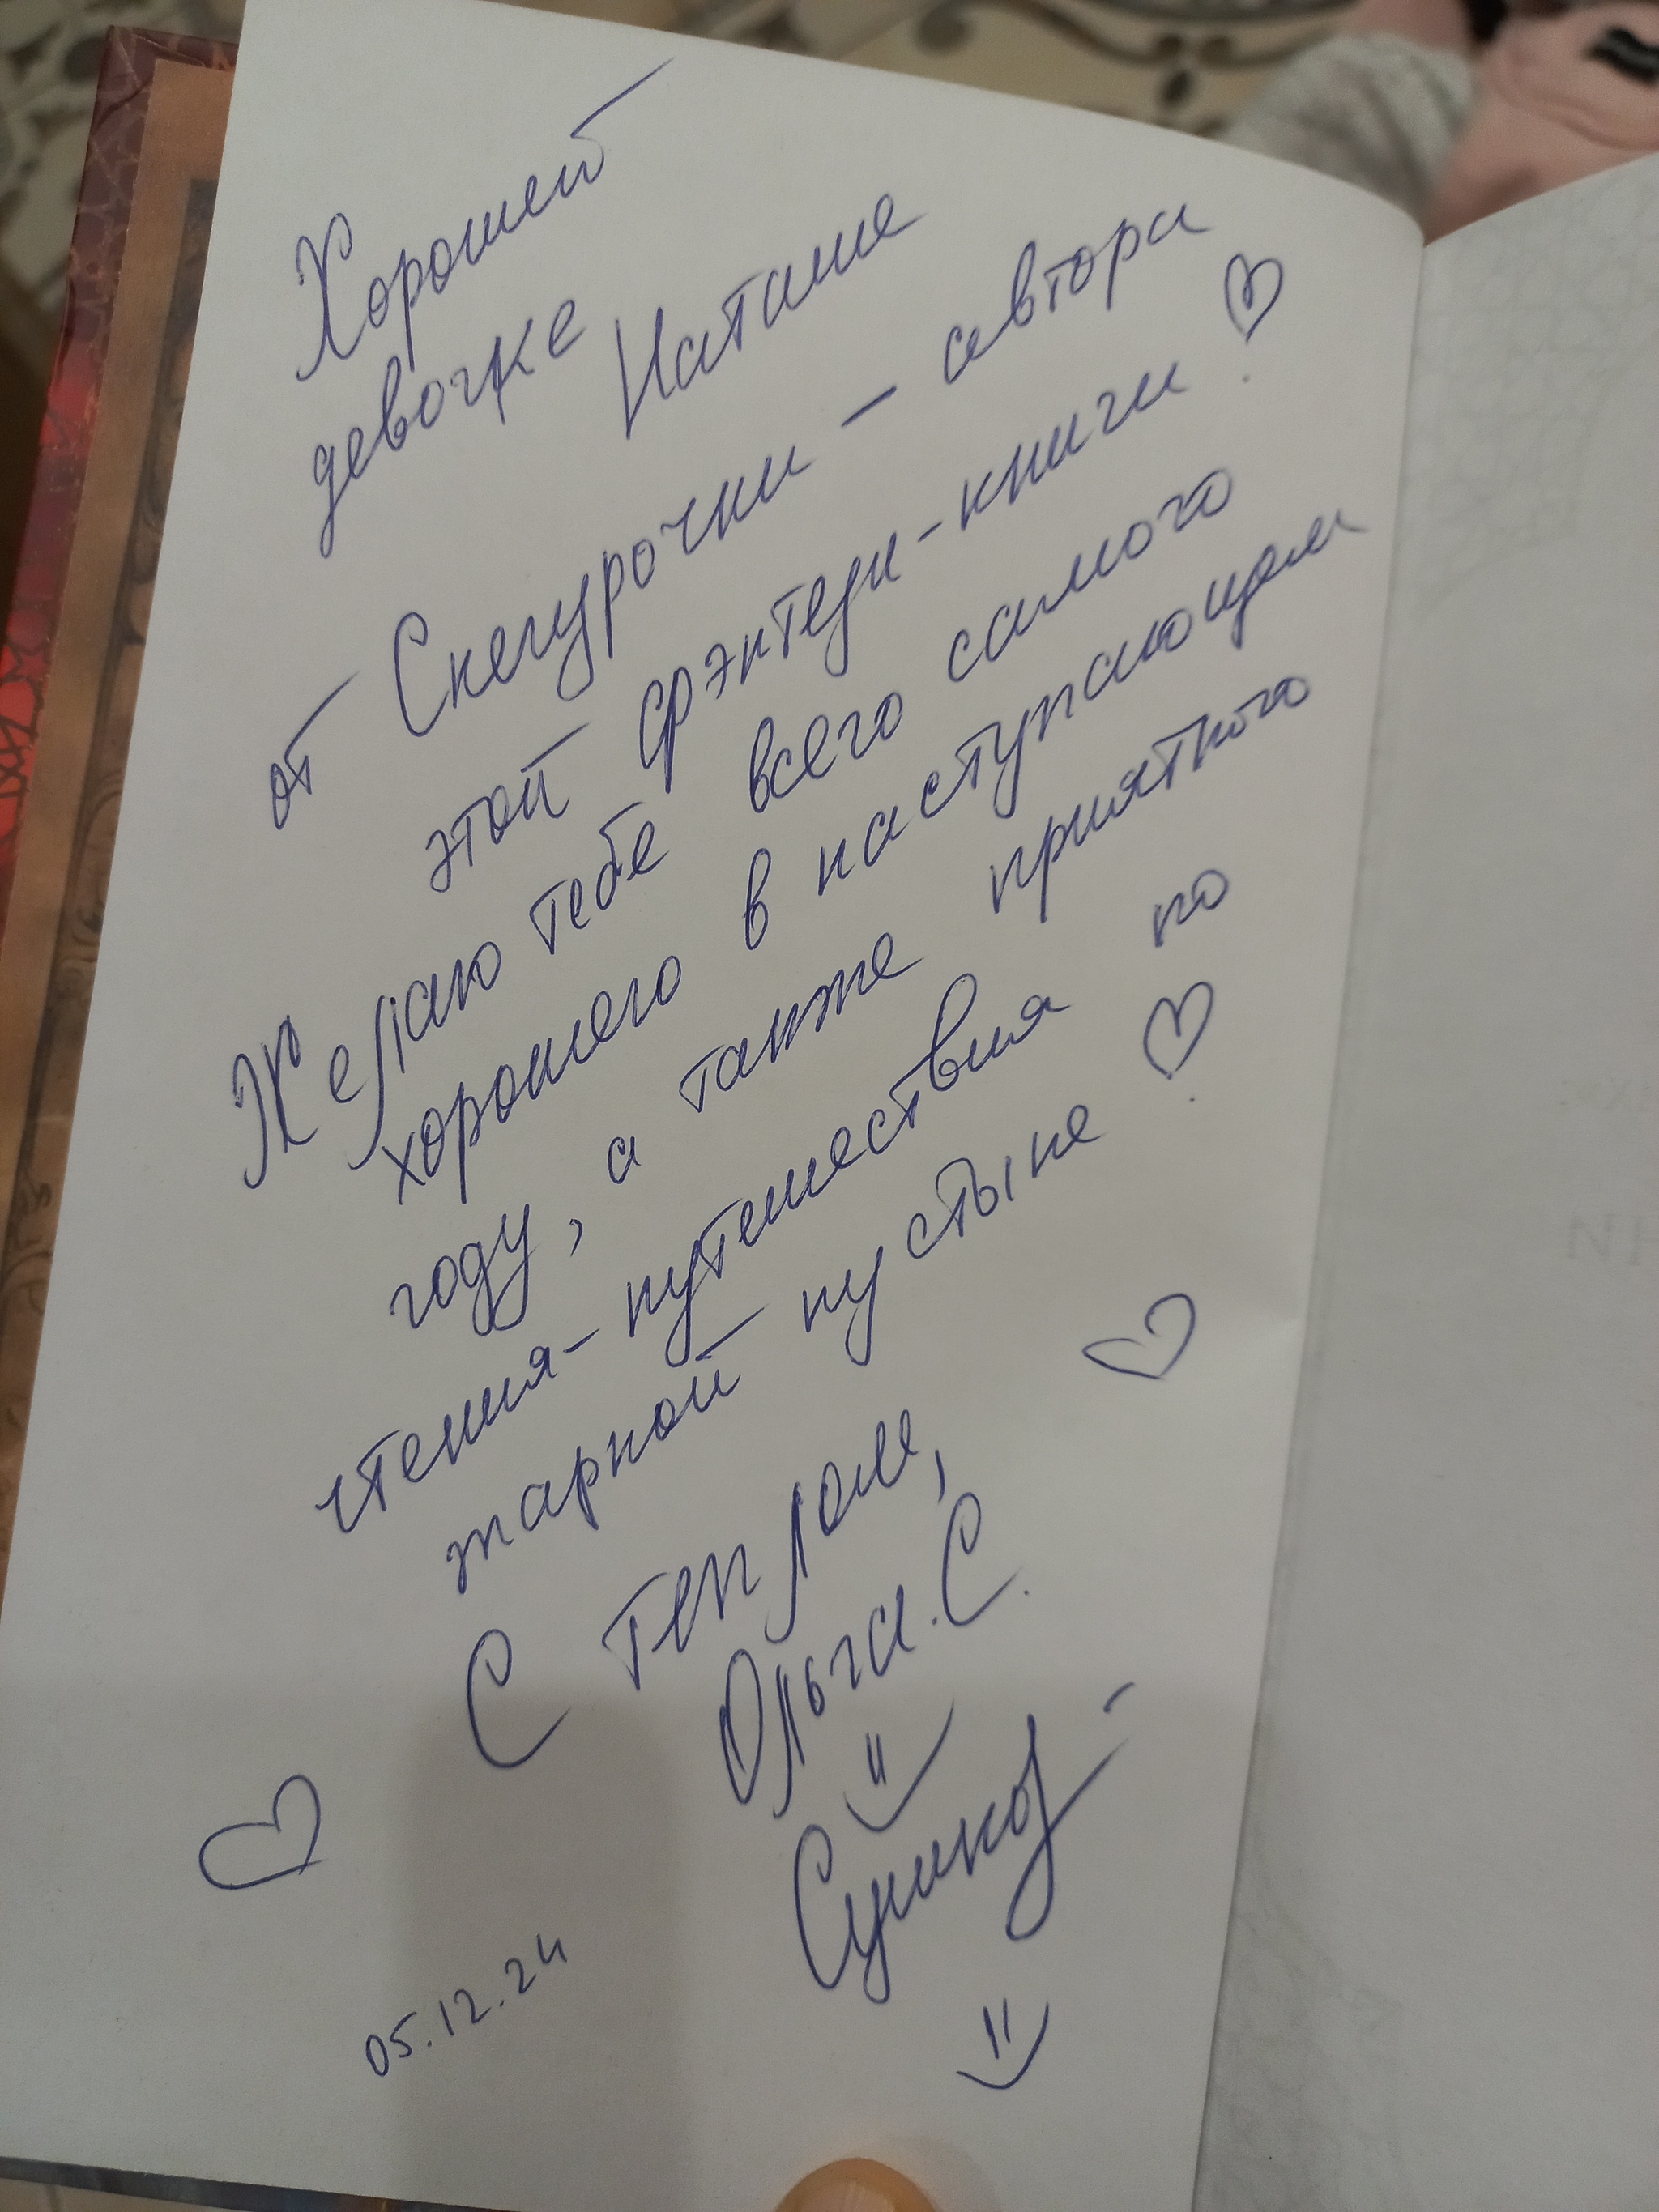 Хорошей
девочке Наташе
от Снегурочки – автора
этой фэнтези-книги!
Желаю тебе всего самого
хорошего в наступающем
году, а также приятного
чтения-путешествия по
жаркой пустыне!
С теплом,
Ольга С.
05.12.24